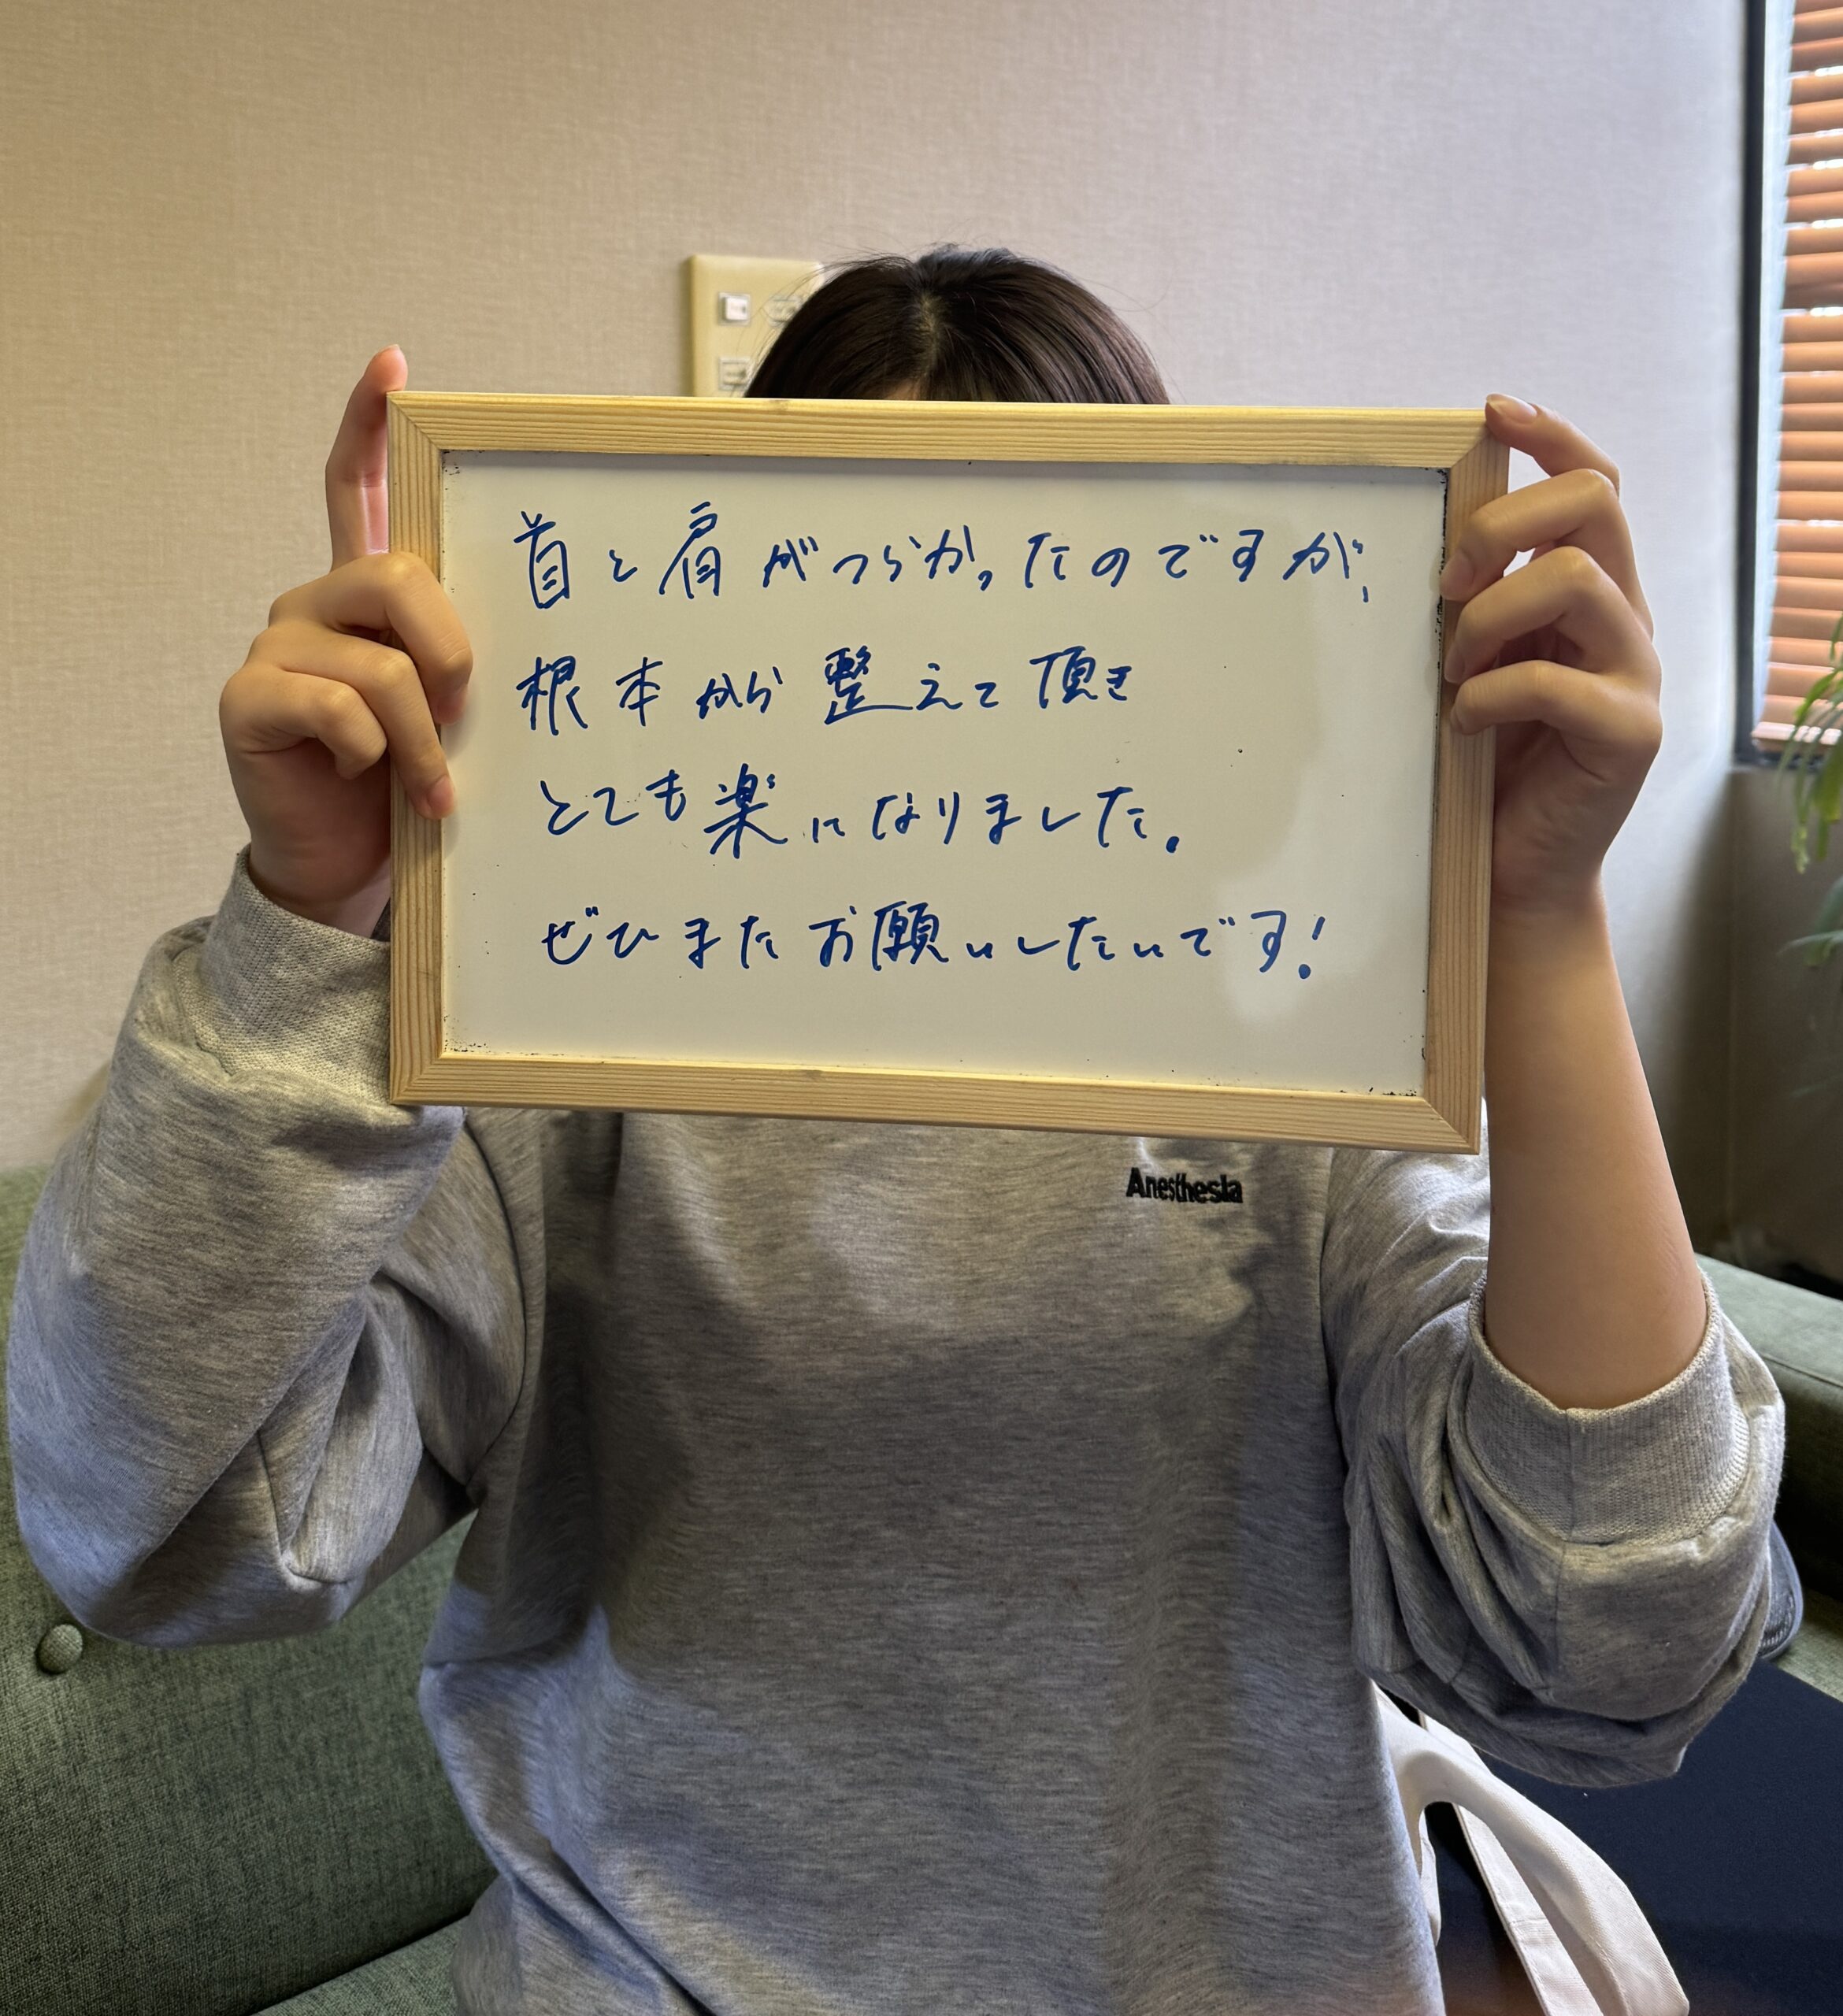 首と肩がつらかったのですが、
根本から整えて頂き
とても楽になりました。
ぜひまたお願いしたいです!
Anesthesia